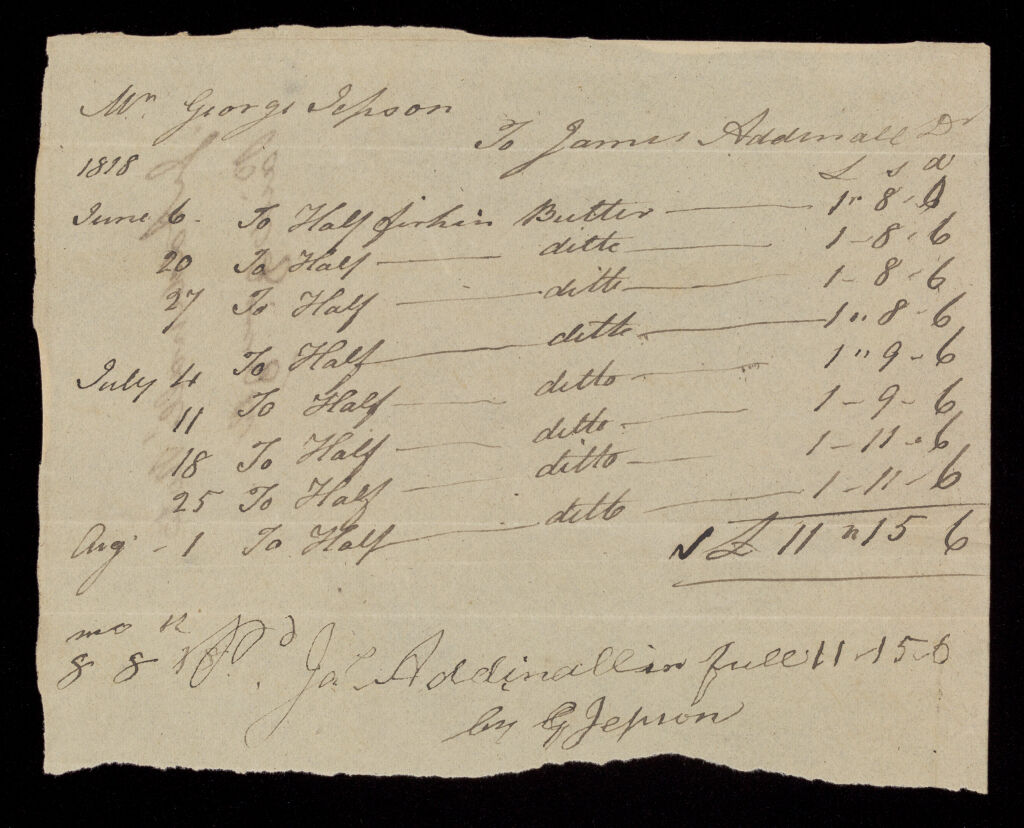 Mr. George Jepson
To James Addinall Dr
1818 £ s d
June 6 - To Half firkin Butter — 1 " 8 - 6
20 To Half — ditto — 1 - 8 - 6
27 To Half — ditto — 1 - 8 - 6
July 4 To Half — ditto — 1 " 8 - 6
11 To Half — ditto - 1 " 9 - 6
18 To Half - ditto - 1 - 9 - 6
25 To Half — ditto — 1 - 11 - 6
Aug - 1 To Half — ditto — 1 - 11 - 6
£ 11 " 15 6
mo
8 8 18 Pd Jas Addinall in full 11 - 15 - 6
by G Jepson